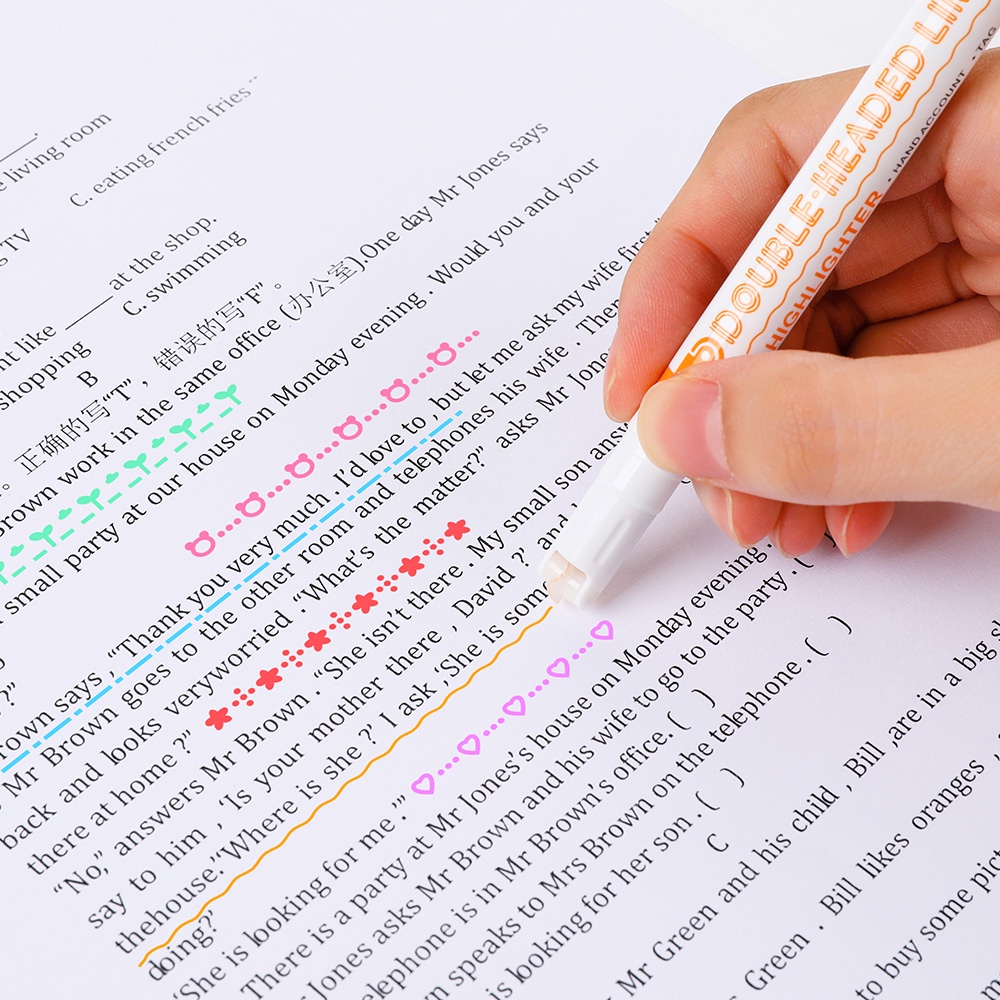 living room
C. eating french fries
TV
at the shop.
C. swimming
like
shopping
B
正确的写“T”，错误的写“F”。
Brown work in the same office (办公室).One day Mr Jones says
small party at our house on Monday evening . Would you and your
Brown says , “Thank you very much . I'd love to , but let me ask my wife
Mr Brown goes to the other room and telephones his wife .
back and looks veryworried .“What's the matter?” asks Mr
there at home ?”
“No,” answers Mr Brown .“She isn't there . My small son
say to him , ‘Is your mother there , David ?’ and
thehouse.’‘Where is she ?’ I ask ,‘She is
doing?’
‘She is looking for me .’”
There is a party at Mr Jones's house on Monday evening .
Jones asks Mr Brown and his wife to go to the party . (
telephone is in Mr Brown's office. ( )
speaks to Mrs Brown on the telephone . ( )
is looking for her son . ( )
C
Mr Green and his child , Bill ,are in a big
Green . Bill likes oranges ,
to buy some
DOUBLE-HEADED
HIGHLIGHTER
• HAND ACCOUNT • TAG